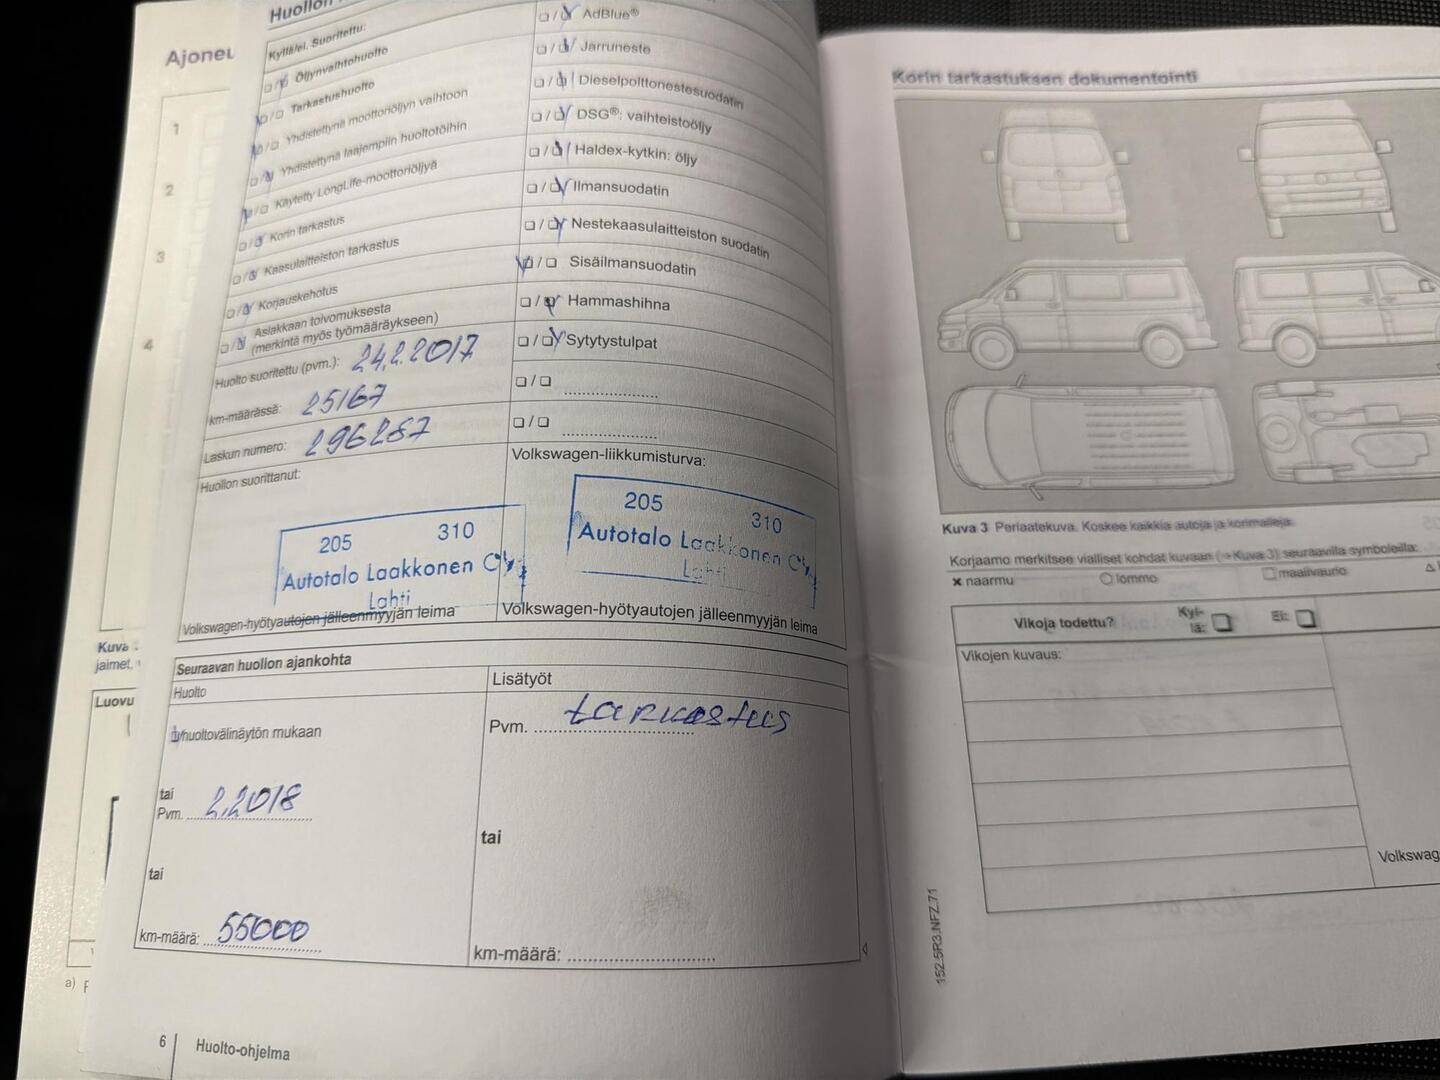 Ajoneu
1
2
3
4
Kuva
jaimet,
Luovu
a)
Kyllä/ei. Suoritettu:
❏/❏ Öljynvaihtohuolto
❏/❏ Tarkastushuolto
❏/❏ Yhdistettynä moottoriöljyn vaihtoon
❏/❏ Yhdistettynä laajempiin huoltotöihin
❏/❏ Käytetty LongLife-moottoriöljyä
❏/❏ Korin tarkastus
❏/❏ Kaasulaitteiston tarkastus
❏/❏ Korjauskehotus
❏/❏ Asiakkaan toivomuksesta
(merkintä myös työmääräykseen)
Huolto suoritettu (pvm.): 24.2.2017
km-määrässä: 25167
Laskun numero: 296287
Huollon suorittanut:
205 310
Autotalo Laakkonen Oy
Lahti
Volkswagen-hyötyautojen jälleenmyyjän leima
❏/❏ AdBlue®
❏/❏ Jarruneste
❏/❏ Dieselpolttonestesuodatin
❏/❏ DSG®: vaihteistoöljy
❏/❏ Haldex-kytkin: öljy
❏/❏ Ilmansuodatin
❏/❏ Nestekaasulaitteiston suodatin
❏/❏ Sisäilmansuodatin
❏/❏ Hammashihna
❏/❏ Sytytystulpat
❏/❏ ....................
❏/❏ ....................
Volkswagen-liikkumisturva:
205 310
Autotalo Laakkonen Oy
Lahti
Volkswagen-hyötyautojen jälleenmyyjän leima
Seuraavan huollon ajankohta
Huolto
huoltovälinäytön mukaan
tai
Pvm. 2.2018
tai
km-määrä: 55000
Lisätyöt
Pvm. tarkastus
tai
km-määrä: ....................
6 Huolto-ohjelma
Korin tarkastuksen dokumentointi
Kuva 3 Periaatekuva. Koskee kaikkia autoja ja korimalleja.
Korjaamo merkitsee vialliset kohdat kuvaan (⇒ Kuva 3) seuraavilla symboleilla:
× naarmu ○ lommo ❏ maalivaurio △
Vikoja todettu? Kyl-
lä: ❏ Ei: ❏
Vikojen kuvaus:
Volkswag
152.5R3.NFZ.71